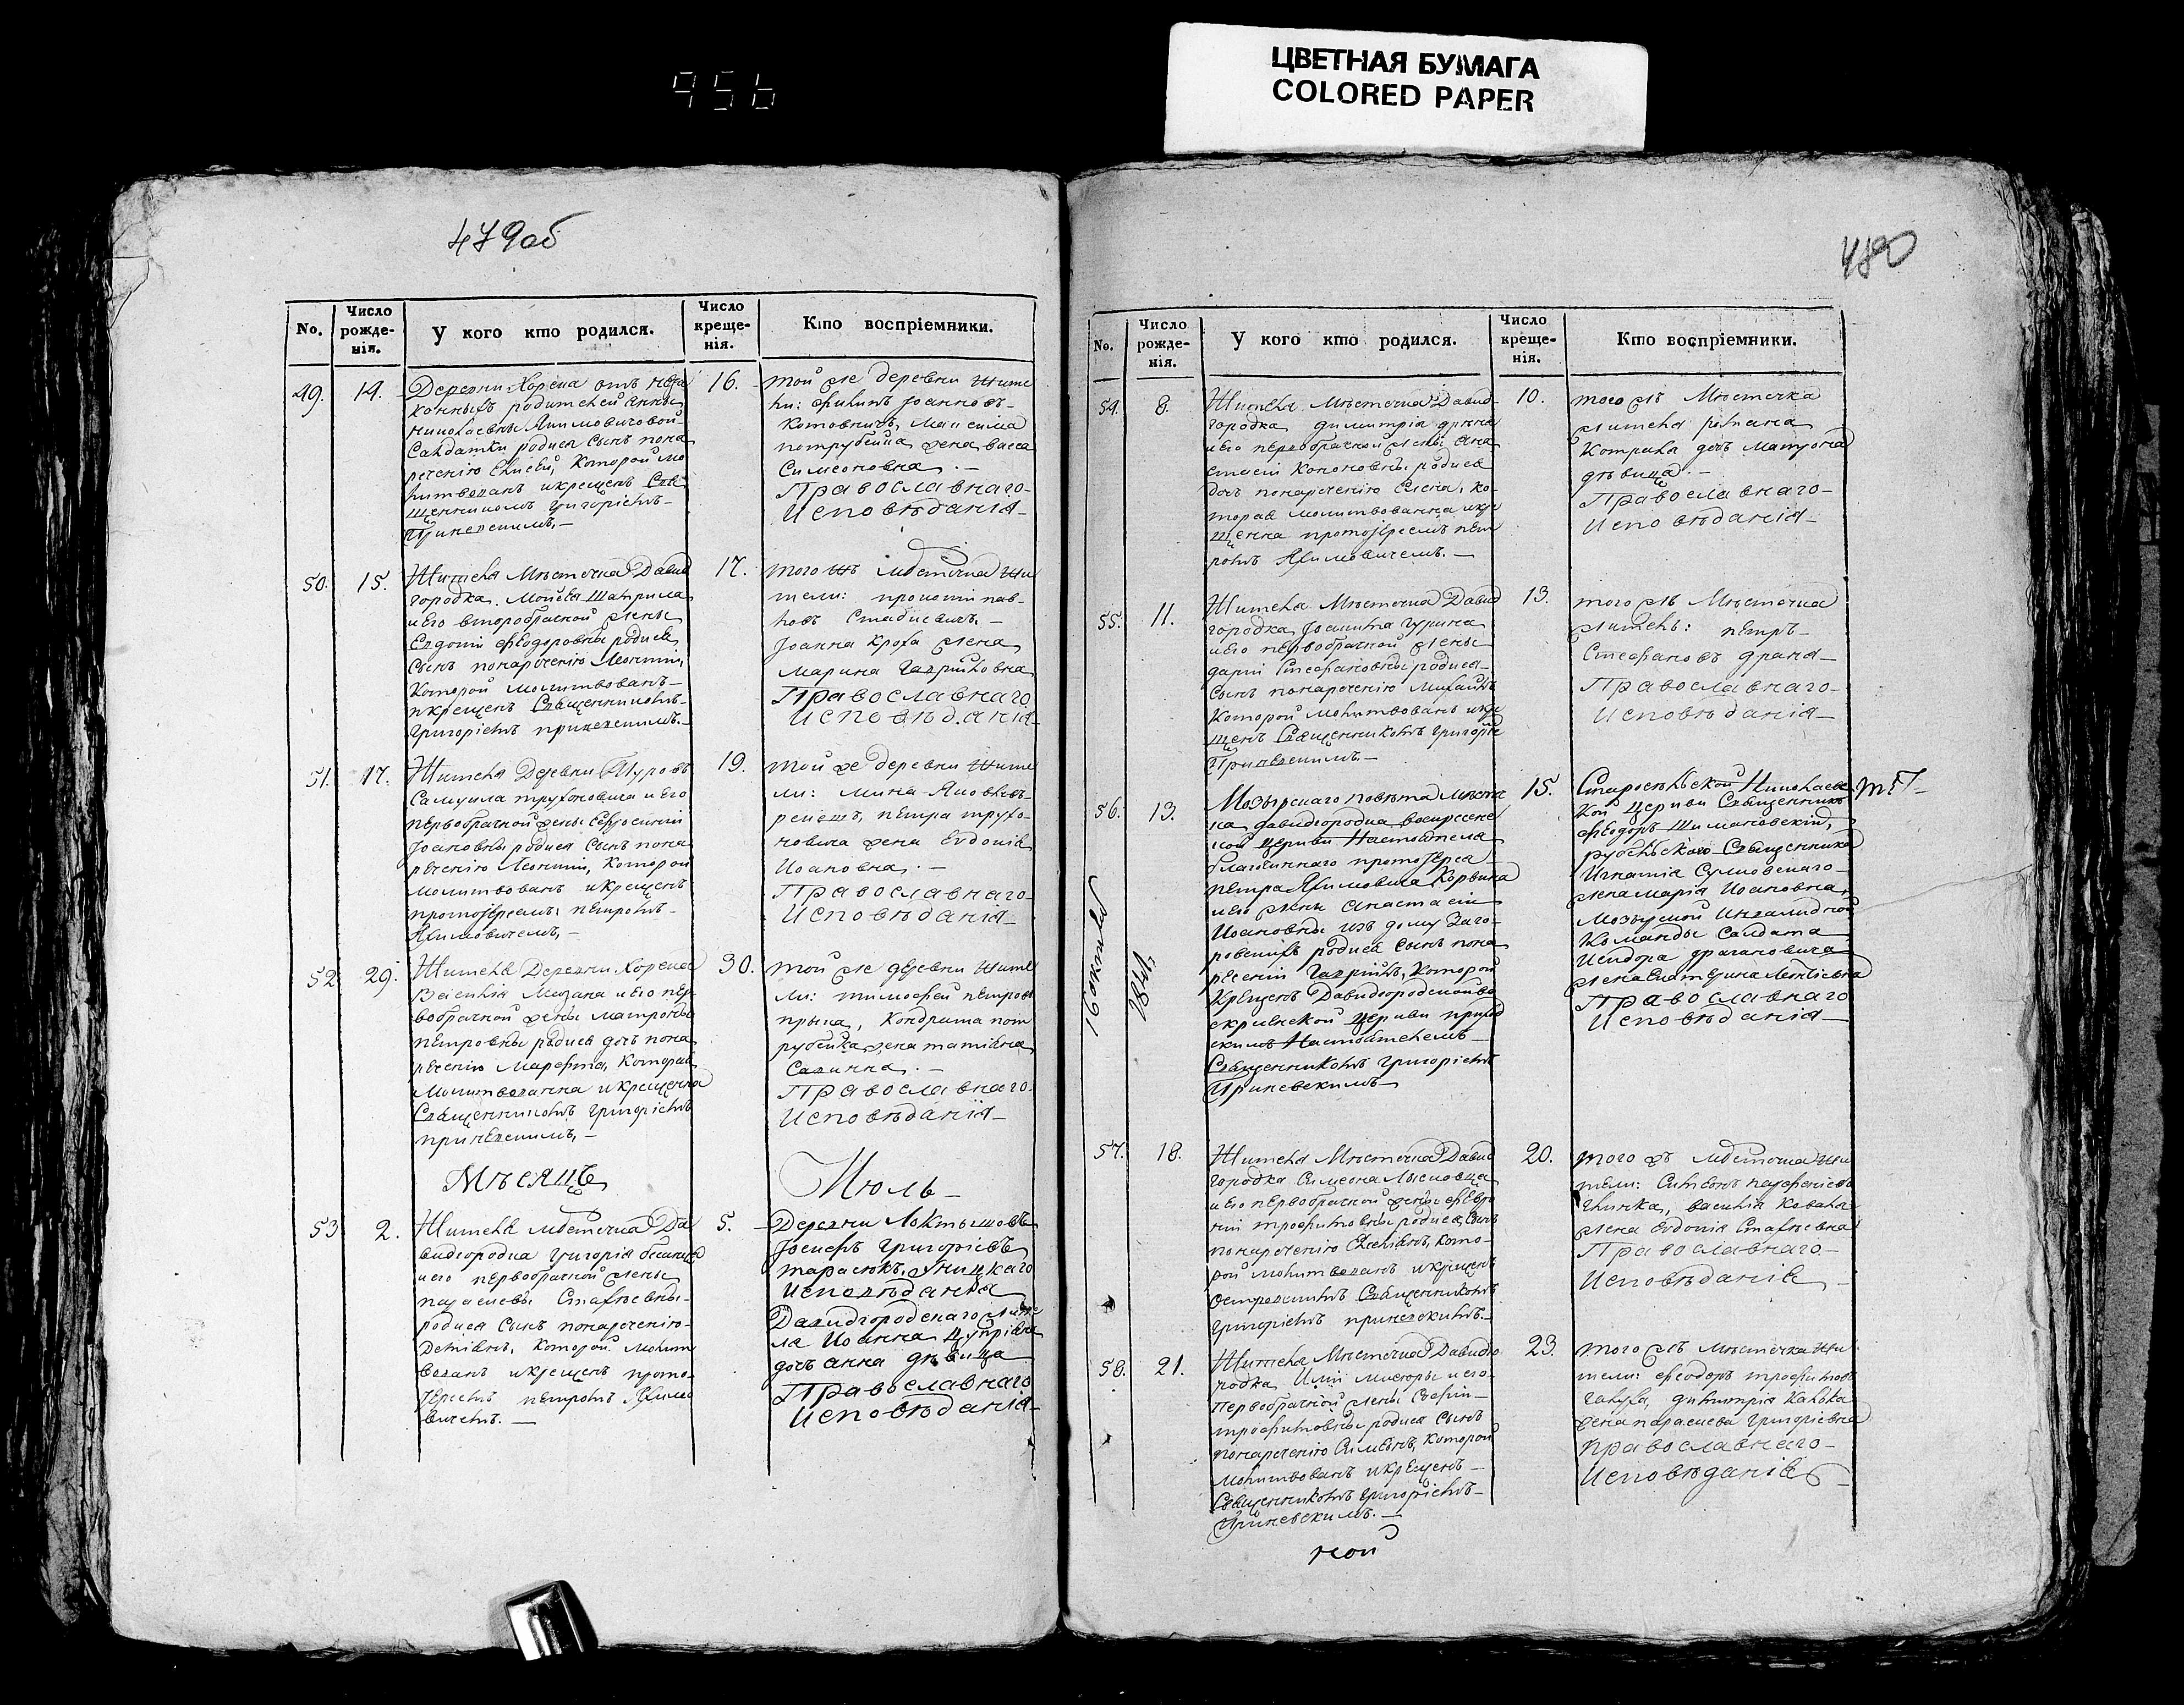 956
ЦВЕТНАЯ БУМАГА
COLORED PAPER
479об
No.
Число рожденія.
У кого кто родился.
Число крещенія.
Кто воспріемники.
49.
14.
Деревни Хорска отъ неза
конныхъ родителей Анны
Николаевны Климовичовой
Салдатки родися сынъ пона
речению Елисей, Которой мо
литвованъ икрещенъ Свя
щенникомъ Григоріемъ
Гриневскимъ,
16.
той же деревни жите
ли: Филипъ Іоанновъ
Котовичъ, Максима
потрубейка жена васса
Симеоновна
Православнаго
Исповѣданія
50.
15.
Жителя Мѣстечка Давид
городка, Моисея
иего второбрачной жены
Евдокіи Феодоровны родися
Сынъ понареченію Леонтій,
Которой молитвованъ
икрещенъ Священникомъ
Григоріемъ гриневскимъ.
17.
того жъ мѣстечка жи
тели: прокопій пав
ловъ Стадневичъ,
Іоанна Кроха жена
Марина Гаврииловна
Православнаго
Исповѣданія
51.
17.
Жителя Деревни Туровъ
Самуила трухоновича и его
первобрачной жены Евфросиніи
Іоановны родися Сынъ пона
реченію Леонтій, Которой
молитвованъ икрещенъ
протоіереемъ петромъ
Якимовичемъ,
19.
той же деревни жите
ли: Мина Яковлевъ
ремезъ, петра трухо
новича жена Евдокія
Иоановна.
Православнаго
Исповѣданія
52
29.
Жителя Деревни Хорска
Василія Мазана иего пер
вобрачной жены Матроны
петровны родися дочъ пона
реченію Марфта, Которая
Молитвованна икрещенна
Священникомъ Григоріемъ
гриневскимъ,
30.
той же деревни жите
ли: тимофей петровъ
прыка, Кондрата пот
рубейка жена татіана
Савична.
Православнаго
Исповѣданія
Мѣсяцъ
Июль
53
2.
Жителя мѣстечка Да
видгородка Григорія
иего первобрачной жены
параскевы Стафѣевны
родися Сынъ понареченію
Деміянъ, Которой молит
вованъ икрещенъ прото
іереемъ петромъ Якимо
вичемъ.
5.
Деревни Локтышовъ
Іосифъ Григоріевъ
тарасюкъ, Униатскаго
Исповѣданія
Давидгородскаго жите
ля Иоанна
дочъ анна дѣвица
Православнаго
Исповѣданія
480
No.
Число рожденія.
У кого кто родился.
Число крещенія.
Кто воспріемники.
54.
8.
Жителя Мѣстечка Давид
городка димитрія
иего первобрачной жены Ана
стасіи Кононовны родися
дочъ понареченію Елена, ко
торая молитвованна икре
щенна протоіереемъ пет
ромъ Якимовичемъ.
10.
того жъ Мѣстечка
жителя романа
Котрала дочъ Матрона
дѣвица.
Православнаго
Исповѣданія
55.
11.
Жителя Мѣстечка Давид
городка Іоакима Гурина
иего первобрачной жены
дарьи Стефановны родися
Сынъ понареченію Михаилъ
Которой молитвованъ икре
щенъ Священникомъ Григоріе
Гриневскимъ.
13.
того жъ Мѣстечка
житель: петръ
Стефановъ
Православнаго
Исповѣданія
16 октября
1842
56.
13.
Мозырскаго повѣта мѣстеч
ка давидгородка воскресенс
кой церкви Настоятеля
благочиннаго протоіерея
петра Якимовича Корвина
иего жены Анастасіи
Иоановны изъ дому Заго
ровскихъ родися Сынъ пона
реченіи Гавріилъ, Которой
Крещенъ Давидгородской во
скресенской церкви приход
скимъ Настоятелемъ
Священникомъ Григоріемъ
Гриневскимъ
15.
Старосельской Николаевс
кой церкви Священникъ
Феодоръ Шимановский,
рубельского Священника
Игнатія Сулковскаго
жена марія Иоановна,
Мозырской Инвалидной
Команды Салдата
Исидора драгановича
жена Екатерина Леонтіевна
Православнаго
Исповѣданія
57.
18.
Жителя Мѣстечка Давид
городка Симеона Лисковца
иего первобрачной жены февро
ніи трофимовны родися Сынъ
понареченію Емеліянъ, кото
рой молитвованъ икрещенъ
Священникомъ
Григоріемъ гриневскимъ.
20.
того жъ мѣстечка жи
тели: Симеонъ парфеніевъ
Глинка, василія Коваля
жена Евдокія Стафѣевна
Православнаго
Исповѣданія
58.
21.
Жителя Мѣстечка Давидго
родка Иліи иего
первобрачной жены Софіи
трофимовны родися Сынъ
понареченію Симеонъ, Которой
молитвованъ икрещенъ
Священникомъ Григоріемъ
Гриневскимъ.
23.
того жъ мѣстечка жи
тели: Феодоръ трофимовъ
димитрія
жена параскева Григоріевна
православнаго
Исповѣданія